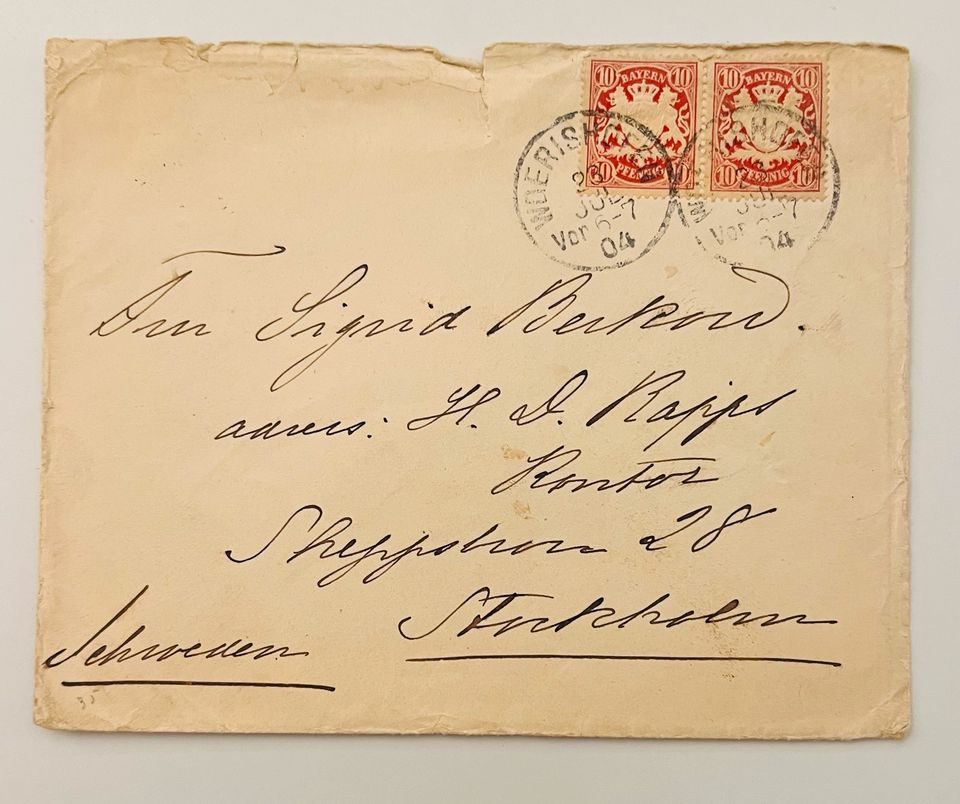 10 BAYERN 10
10 PFENNIG 10
10 BAYERN 10
10 PFENNIG 10
WOERISHOFEN
23
JUL
Vor 6-7
04
Vor 6-7
04
Sigrid
adress: H. D. Rapps
Kontor
Skeppsbron 28
Stockholm
Schweden
35